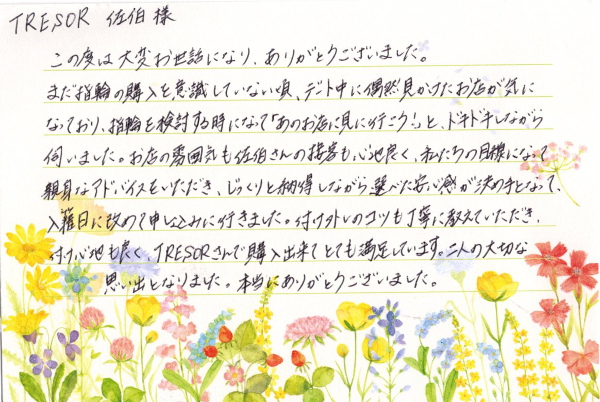 TRESOR 佐伯 様
この度は大変お世話になり、ありがとうございました。
まだ指輪の購入を意識していない頃、デート中に偶然見かけたお店が気に
なっており、指輪を検討する時になって「あのお店に見に行こう！」と、ドキドキしながら
伺いました。お店の雰囲気も佐伯さんの接客も心地良く、私たちの目線になって
親身なアドバイスをいただき、じっくりと納得しながら選べた安心感が決め手となって、
入籍日に改めて申し込みに行きました。付け外しのコツも丁寧に教えていただき、
付け心地も良く、TRESORさんで購入出来てとても満足しています。二人の大切な
思い出となりました。本当にありがとうございました。